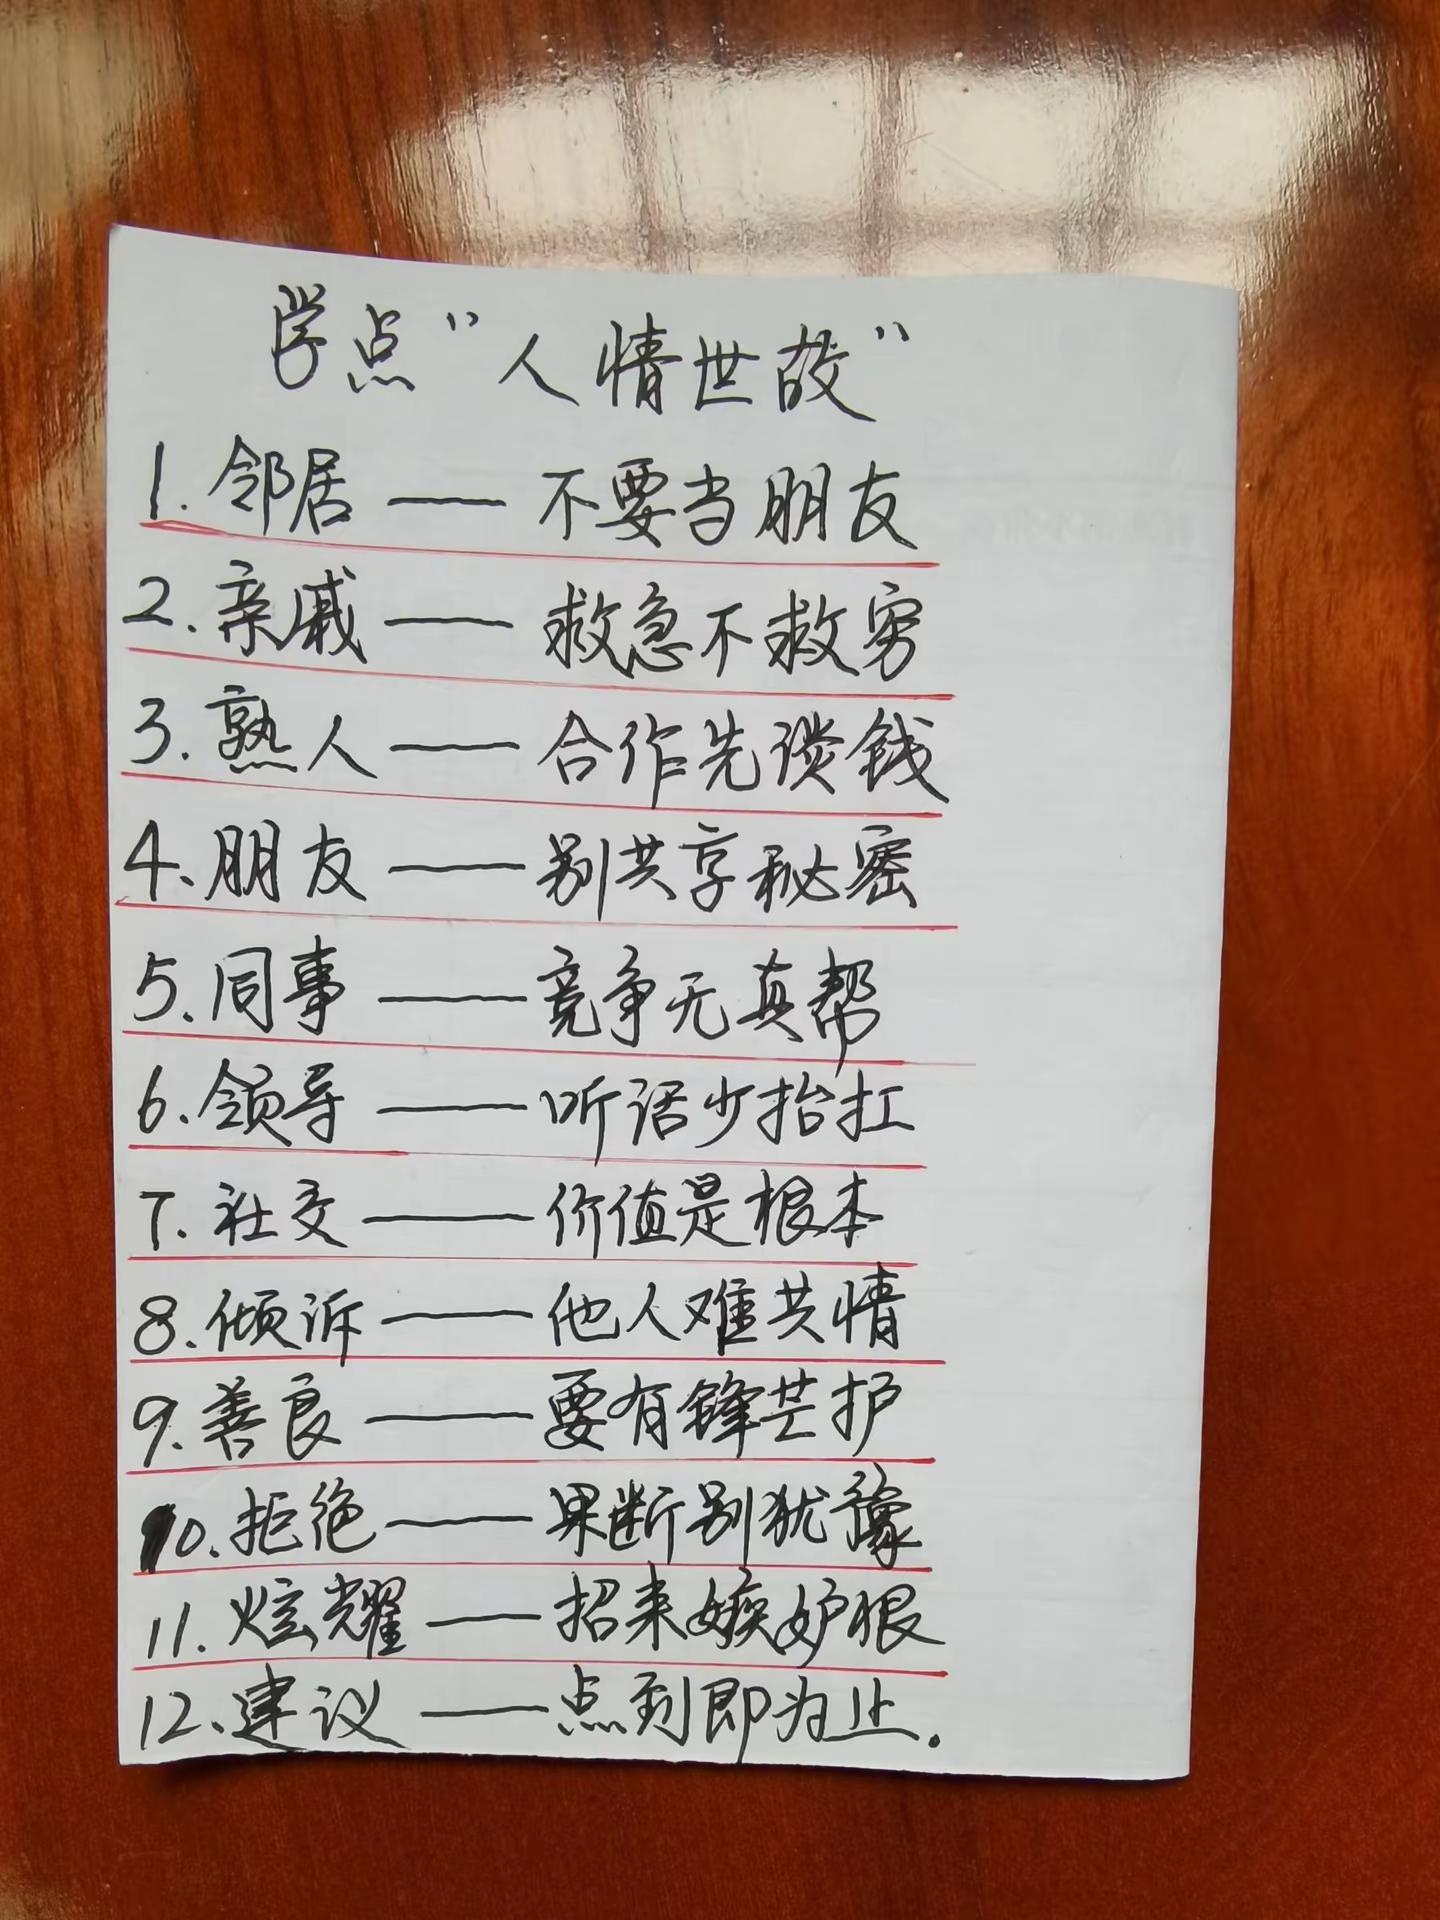 学点“人情世故”
1. 邻居 —— 不要当朋友
2. 亲戚 —— 救急不救穷
3. 熟人 —— 合作先谈钱
4、朋友 —— 别共享秘密
5、同事 —— 竞争无真帮
6、领导 —— 听话少抬扛
7、社交 —— 价值是根本
8、倾诉 —— 他人难共情
9、善良 —— 要有锋芒护
10、拒绝 —— 果断别犹豫
11、炫耀 —— 招来嫉妒恨
12、建议 —— 点到即为止.